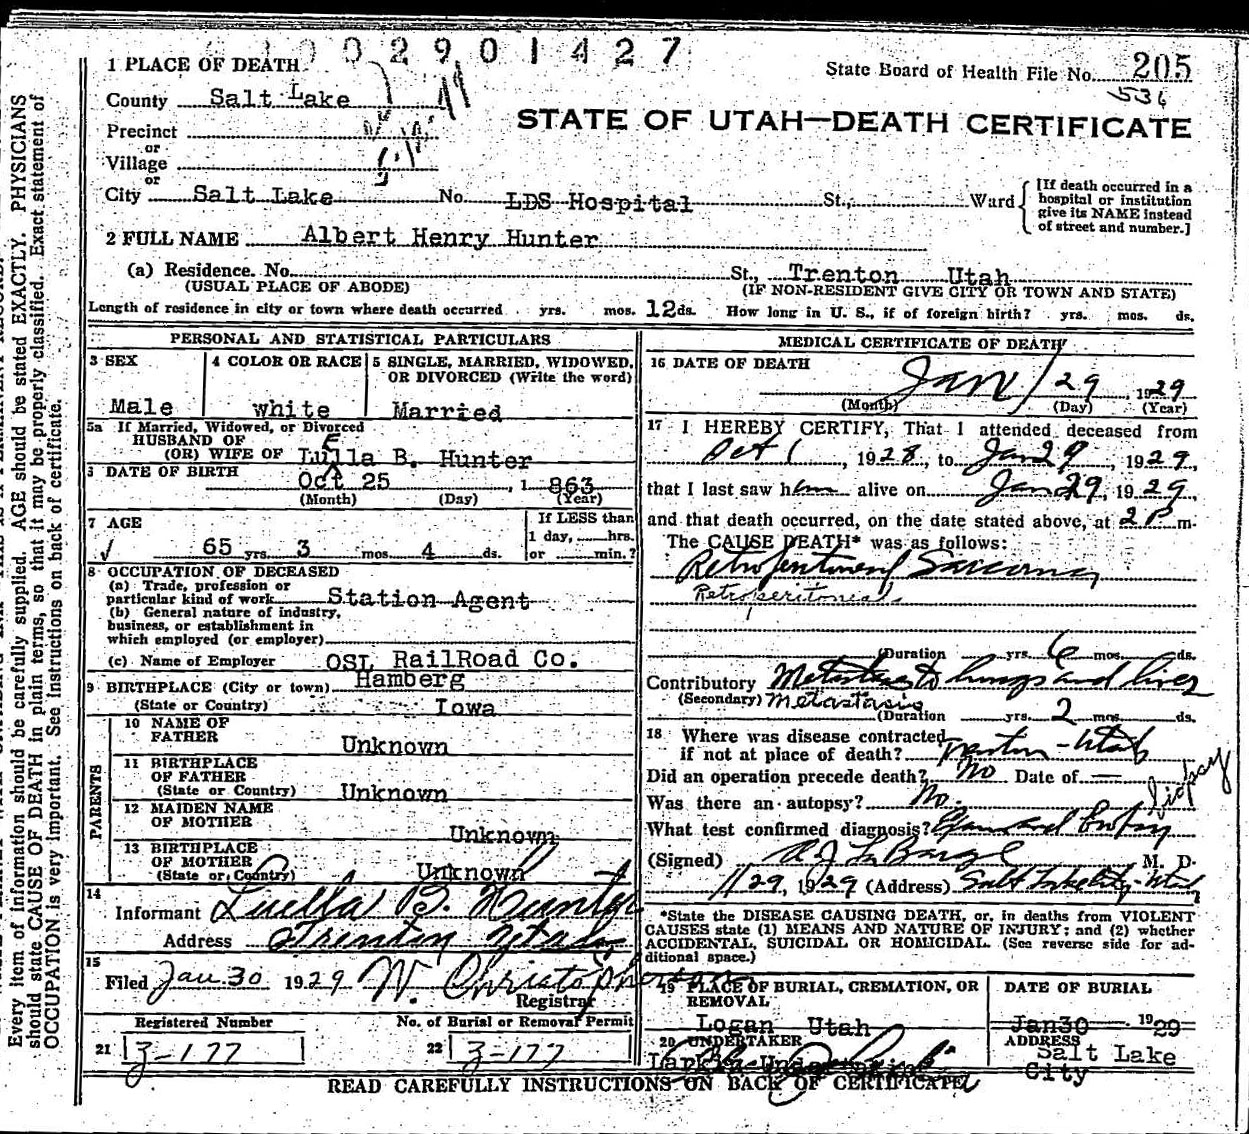 0 0 2 9 0 1 4 2 7
1 PLACE OF DEATH
State Board of Health File No. 205
536
County Salt Lake
STATE OF UTAH—DEATH CERTIFICATE
Precinct
or
Village
or
City Salt Lake No. LDS Hospital St., Ward
[If death occurred in a
hospital or institution
give its NAME instead
of street and number.]
2 FULL NAME Albert Henry Hunter
(a) Residence. No. St., Trenton Utah
(USUAL PLACE OF ABODE) (IF NON-RESIDENT GIVE CITY OR TOWN AND STATE)
Length of residence in city or town where death occurred yrs. mos. 12 ds. How long in U. S., if of foreign birth? yrs. mos. ds.
PERSONAL AND STATISTICAL PARTICULARS
3 SEX
Male
4 COLOR OR RACE
white
5 SINGLE, MARRIED, WIDOWED,
OR DIVORCED (Write the word)
Married
5a If Married, Widowed, or Divorced
HUSBAND OF
(OR) WIFE OF Lulla B. Hunter
E
DATE OF BIRTH Oct 25 , 1 863
(Month) (Day) (Year)
7 AGE
√ 65 yrs. 3 mos. 4 ds.
If LESS than
1 day, hrs.
or min.?
8 OCCUPATION OF DECEASED
(a) Trade, profession or
particular kind of work Station Agent
(b) General nature of industry,
business, or establishment in
which employed (or employer)
(c) Name of Employer OSL RailRoad Co.
9 BIRTHPLACE (City or town) Hamberg
(State or Country) Iowa
PARENTS
10 NAME OF
FATHER Unknown
11 BIRTHPLACE
OF FATHER
(State or Country) Unknown
12 MAIDEN NAME
OF MOTHER Unknown
13 BIRTHPLACE
OF MOTHER
(State or Country) Unknown
14
Informant Luella B. Hunter
Address Trenton Utah
15
Filed Jan. 30 1929 W. Christopherson
Registrar
Registered Number
21 3-177
No. of Burial or Removal Permit
22 3-177
MEDICAL CERTIFICATE OF DEATH
16 DATE OF DEATH
Jan / 29 , 1929
(Month) (Day) (Year)
17 I HEREBY CERTIFY, That I attended deceased from
Oct 1 , 1928, to Jan 29 , 1929,
that I last saw him alive on Jan 29, 1929,
and that death occurred, on the date stated above, at 2 P m.
The CAUSE DEATH* was as follows:
Retroperitoneal Sarcoma
Retroperitoneal
(Duration yrs. 6 mos. ds.
Contributory Metastasis to lungs and liver
(Secondary) Metastasis
(Duration yrs. 2 mos. ds.
18 Where was disease contracted
if not at place of death? Trenton - Utah
Did an operation precede death? No Date of —
Was there an autopsy? No.
biopsy
What test confirmed diagnosis? Exam and biopsy
(Signed) M. D.
1/29, 1929 (Address) Salt Lake City - Utah
*State the DISEASE CAUSING DEATH, or, in deaths from VIOLENT
CAUSES state (1) MEANS AND NATURE OF INJURY; and (2) whether
ACCIDENTAL, SUICIDAL OR HOMICIDAL. (See reverse side for ad-
ditional space.)
19 PLACE OF BURIAL, CREMATION, OR
REMOVAL
Logan Utah
DATE OF BURIAL
Jan30 1929
20 UNDERTAKER
ADDRESS
Salt Lake
City
READ CAREFULLY INSTRUCTIONS ON BACK OF CERTIFICATE.
Every item of information should be carefully supplied. AGE should be stated EXACTLY. PHYSICIANS
should state CAUSE OF DEATH in plain terms, so that it may be properly classified. Exact statement of
OCCUPATION is very important. See Instructions on back of certificate.